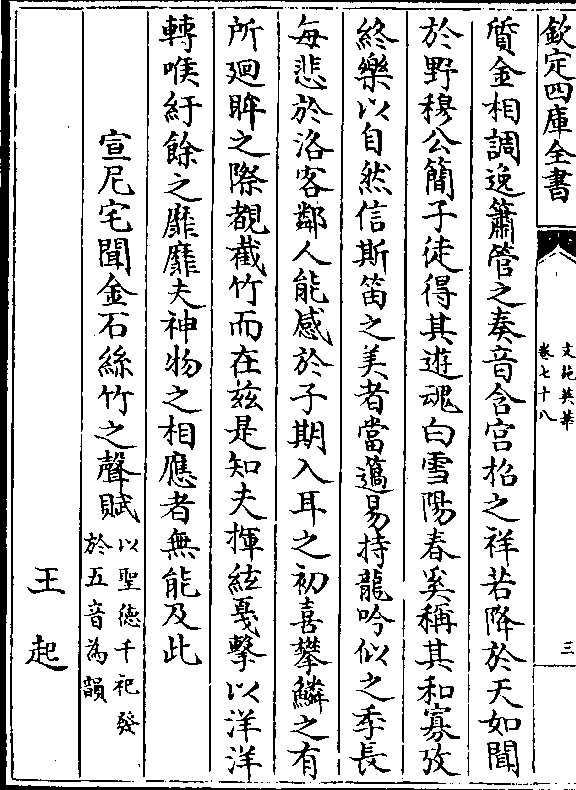 欽定四庫全書
文苑英華
卷七十八
三
質金相調逸簫管之奏音含宮招之祥若降於天如聞
於野穆公簡子徒得其遊魂白雪陽春奚稱其和寡攷
終樂以自然信斯笛之美者當簻易持龍吟似之季長
每悲於洛客鄰人能感於子期入耳之初喜攀鱗之有
所廻眸之際覩截竹而在兹是知夫揮絃戛擊以洋洋
轉喉紆餘之靡靡夫神物之相應者無能及此
宣尼宅聞金石絲竹之聲賦以聖德千祀發
於五音為韻
王起